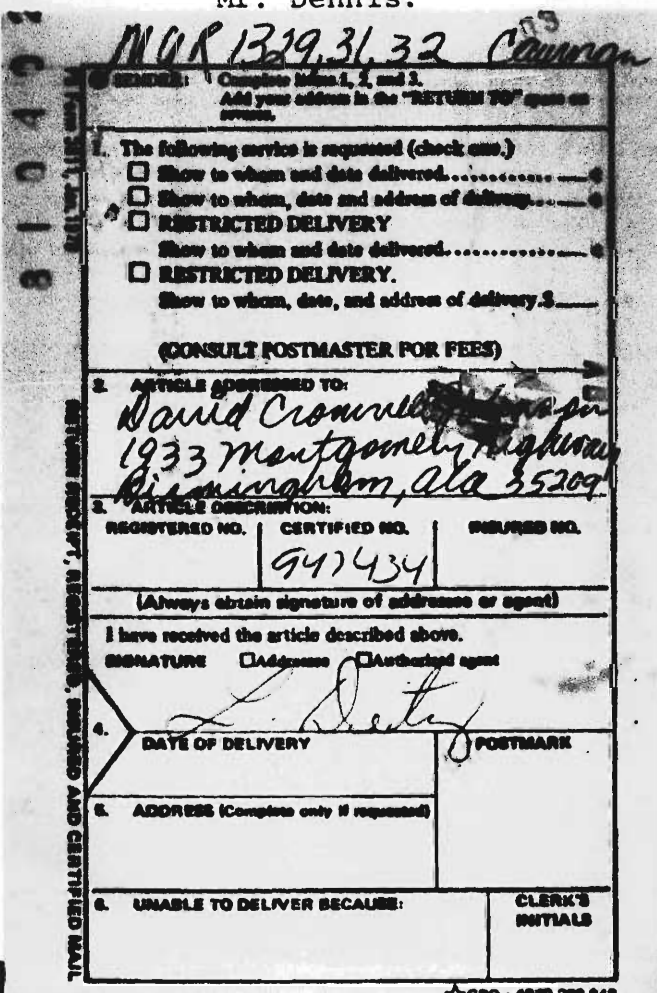 Mr. Dennis.
MUR 1329, 31, 32
SENDER: Complete items 1, 2, and 3.
Add your address in the "RETURN TO" space on
reverse.
1. The following service is requested (check one.)
☐ Show to whom and date delivered............ ¢
☐ Show to whom, date and address of delivery... ¢
☐ RESTRICTED DELIVERY
Show to whom and date delivered............ ¢
☐ RESTRICTED DELIVERY.
Show to whom, date, and address of delivery.$
(CONSULT POSTMASTER FOR FEES)
2. ARTICLE ADDRESSED TO:
David
1933 Montgomery Highway
Birmingham, Ala 35209
3. ARTICLE DESCRIPTION:
REGISTERED NO. CERTIFIED NO. INSURED NO.
947434
(Always obtain signature of addressee or agent)
I have received the article described above.
SIGNATURE ☐Addressee ☐Authorized agent
4.
DATE OF DELIVERY POSTMARK
5. ADDRESS (Complete only if requested)
6. UNABLE TO DELIVER BECAUSE: CLERK'S
INITIALS
PS Form 3811, Jan. 1978
RETURN RECEIPT, REGISTERED, INSURED AND CERTIFIED MAIL